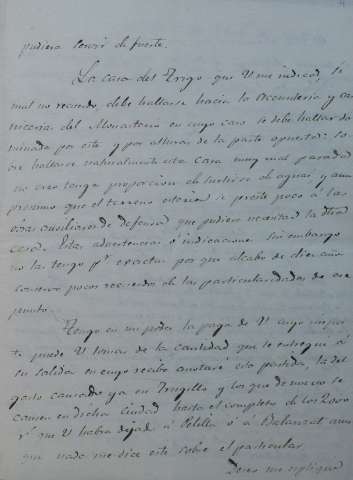 pudiera servir de fuerte.
La casa del Trigo que V me indica, si
mal no recuerdo, debe hallarse hacia la
del Monasterio en cuyo caso se debe hallar do
minada por este y por alturas de la parte opuesta: so
bre hallarse naturalmente esta casa muy mal parada
no creo tenga proporcion de surtirse de agua, y aun
presumo que el terreno esterior se preste poco á las
obras ausiliares de defensa que pudiera necesitar la dicha
casa. Estas advertencias ó indicaciones sin embargo
no las tengo pr exactas por que al cabo de diez años
conservo pocos recuerdos de las particularidades de ese
punto.
Tengo en mi poder la paga de V cuyo impor
te puede V tomar de la cantidad que le entregué á
su salida en cuyo recibo anotaré esta partida, la del
gasto causado ya en Trugillo y los que de nuevo se
causen en dicha Ciudad hasta el completo de los 2000
rs que V habra dejado á Pelilla ó á Balanzat aun
que nada me dice este sobre el particular.